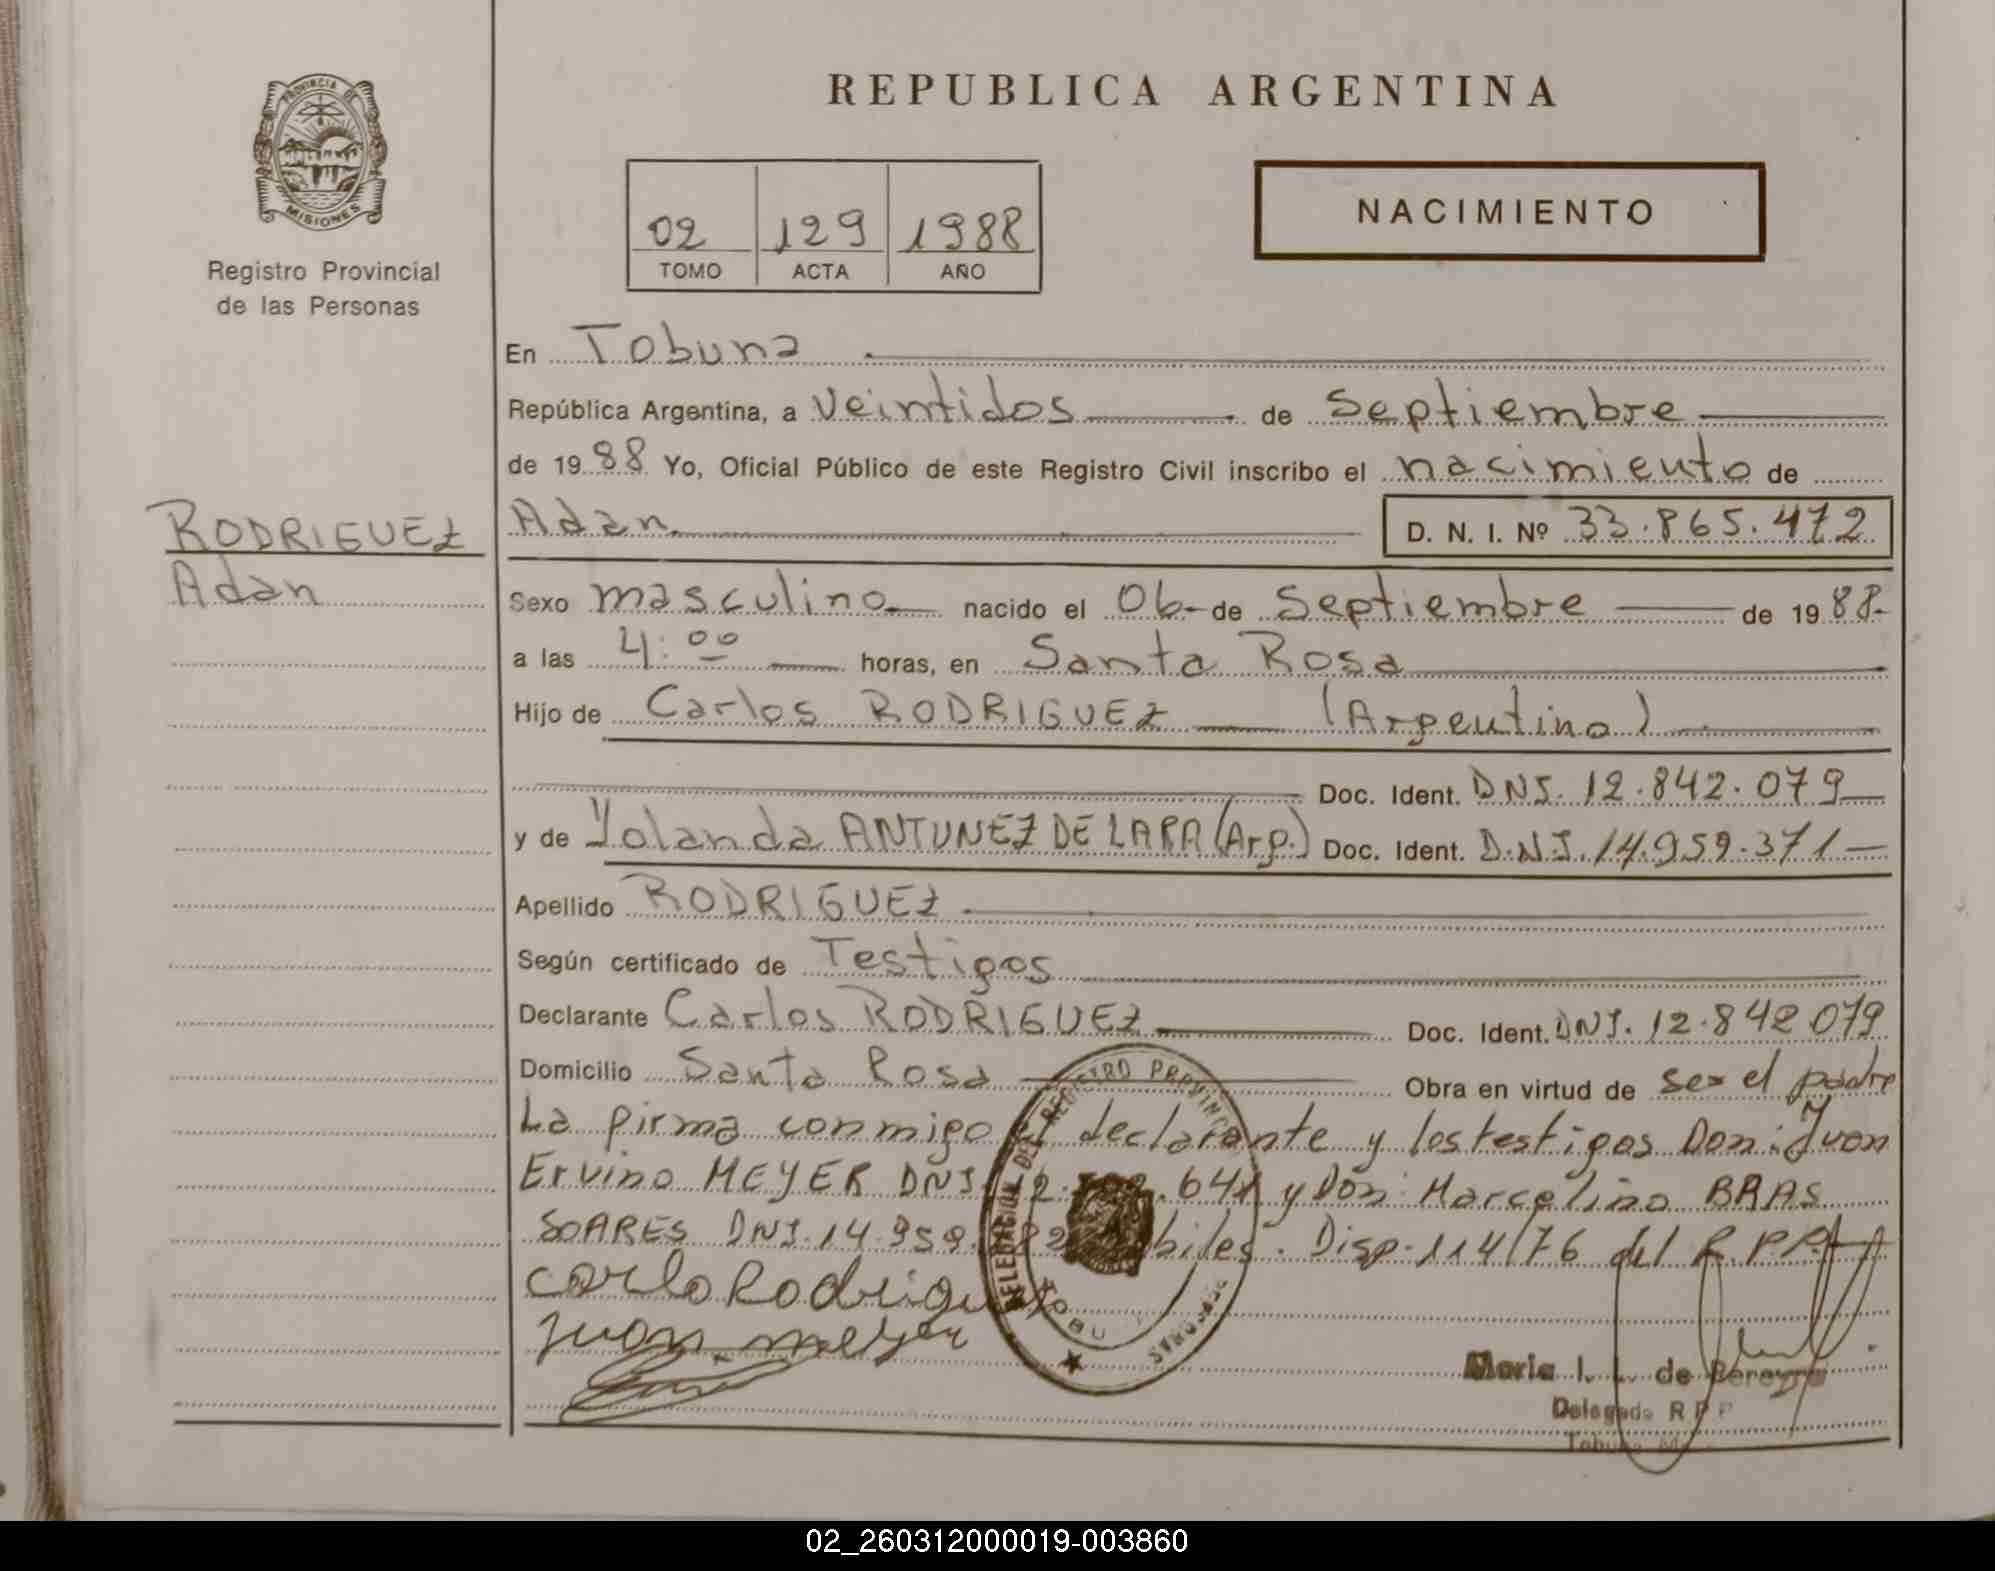 PROVINCIA DE
MISIONES
Registro Provincial
de las Personas
REPUBLICA ARGENTINA
02 129 1988
TOMO ACTA AÑO
NACIMIENTO
En Tobuna
República Argentina, a veintidos de Septiembre
de 1988 Yo, Oficial Público de este Registro Civil inscribo el nacimiento de
RODRIGUEZ
Adan
Adan D. N. I. Nº 33.865.472
Sexo masculino nacido el 06 de Septiembre de 1988.
a las 4:00 horas, en Santa Rosa
Hijo de Carlos RODRIGUEZ (Argentino)
Doc. Ident. DNI. 12.842.079
y de Yolanda ANTUNEZ DE LARA (Arg.) Doc. Ident. D.N.I. 14.959.371
Apellido RODRIGUEZ
Según certificado de Testigos
Declarante Carlos RODRIGUEZ Doc. Ident. DNI. 12.842.079
Domicilio Santa Rosa Obra en virtud de ser el padre
La firma conmigo declarante y los testigos Don: Juan
Ervino MEYER DNI. y Don Marcelino BRAS
SOARES DNI. 14.959. Disp. 114/76 del R.P.P.
Carlo Rodrigu
Juan meyer
DELEGACION DEL REGISTRO PROVINCIAL PERSONAS
Maria I. L. de Bereyra
Delegada R P P
02_260312000019-003860